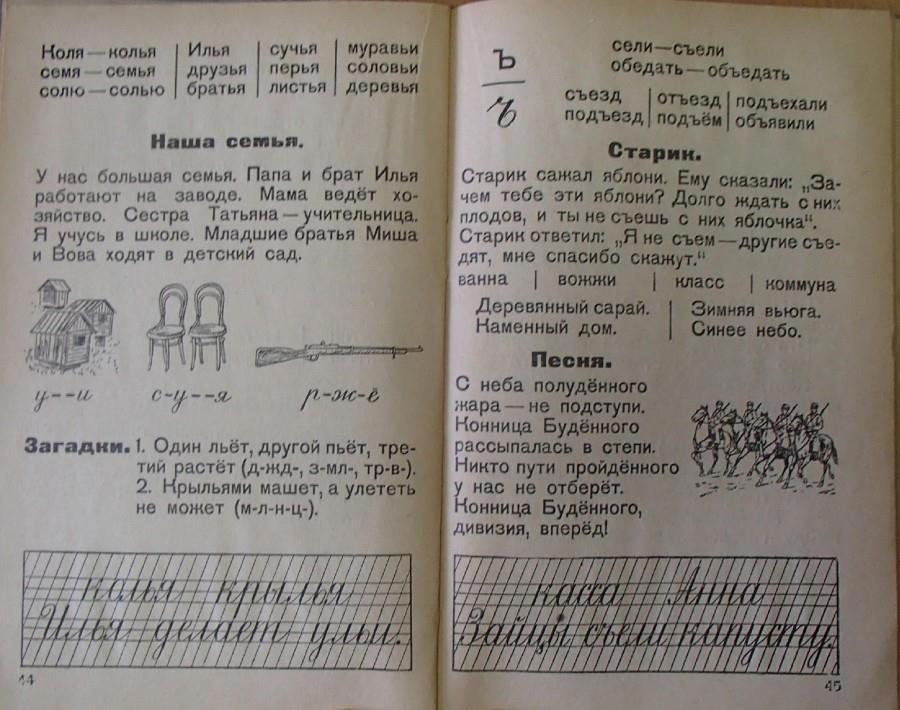 Коля — колья | Илья | сучья | муравьи
семя — семья | друзья | перья | соловьи
солю — солью | братья | листья | деревья
Наша семья.
У нас большая семья. Папа и брат Илья
работают на заводе. Мама ведёт хо-
зяйство. Сестра Татьяна — учительница.
Я учусь в школе. Младшие братья Миша
и Вова ходят в детский сад.
у--и с-у--я р-ж-ё
Загадки. 1. Один льёт, другой пьёт, тре-
тий растёт (д-жд-, з-мл-, тр-в-).
2. Крыльями машет, а улететь
не может (м-л-н-ц-).
колья крылья
Илья делает ульи.
44
Ъ
ъ
сели — съели
обедать — объедать
съезд | отъезд | подъехали
подъезд | подъём | объявили
Старик.
Старик сажал яблони. Ему сказали: „За-
чем тебе эти яблони? Долго ждать с них
плодов, и ты не съешь с них яблочка“.
Старик ответил: „Я не съем — другие съе-
дят, мне спасибо скажут.“
ванна | вожжи | класс | коммуна
Деревянный сарай. | Зимняя вьюга.
Каменный дом. | Синее небо.
Песня.
С неба полудённого
жара — не подступи.
Конница Будённого
рассыпалась в степи.
Никто пути пройдённого
у нас не отберёт.
Конница Будённого,
дивизия, вперёд!
касса Анна
Зайцы съели капусту.
45